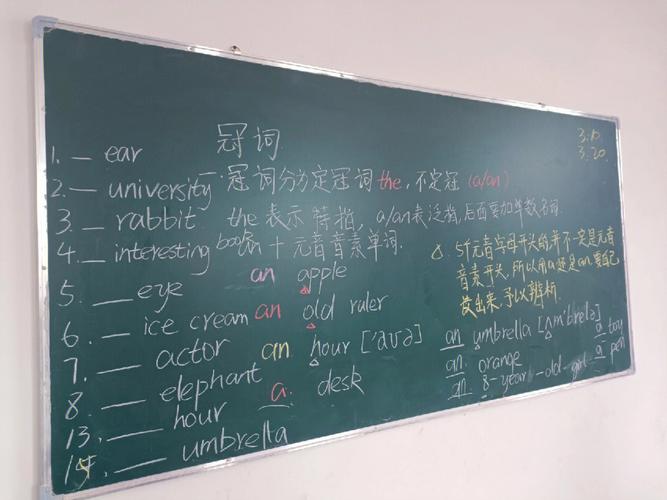 冠词
3.10
3.20
1. __ ear
2. __ university
3. __ rabbit
4. __ interesting book
5. __ eye
6. __ ice cream
7. __ actor
8. __ elephant
13. __ hour
14. __ umbrella
一.冠词分为定冠词the,不定冠(a/an)
the表示特指,a/an表泛指,后面要加单数名词.
an + 元音音素单词.
an apple
an old ruler
an hour ['aʊə]
a desk
△ 5个元音字母开头的,并不一定是元音
音素开头,所以用a还是an,要自己
读出来,予以辨析.
an umbrella [ʌm'brelə] a toy
an orange a pen
an 8-year-old-girl